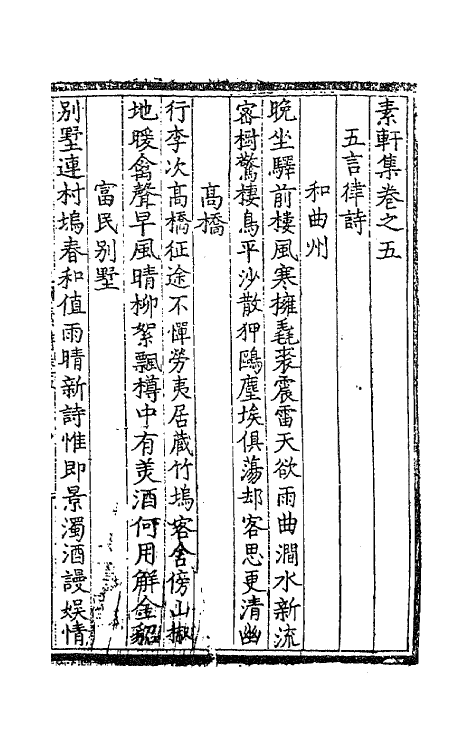 素軒集卷之五
五言律詩
和曲州
晚坐驛前樓風寒擁毳裘震雷天欲雨曲澗水新流
密樹驚棲鳥平沙散狎鷗塵埃俱蕩却客思更清幽
高橋
行李次高橋征途不憚勞夷居蔵竹塢客舍傍山椒
地暖禽聲早風晴柳絮飄樽中有美酒何用解金貂
富民别墅
别墅連村塢春和值雨晴新詩惟即景濁酒謾娱情